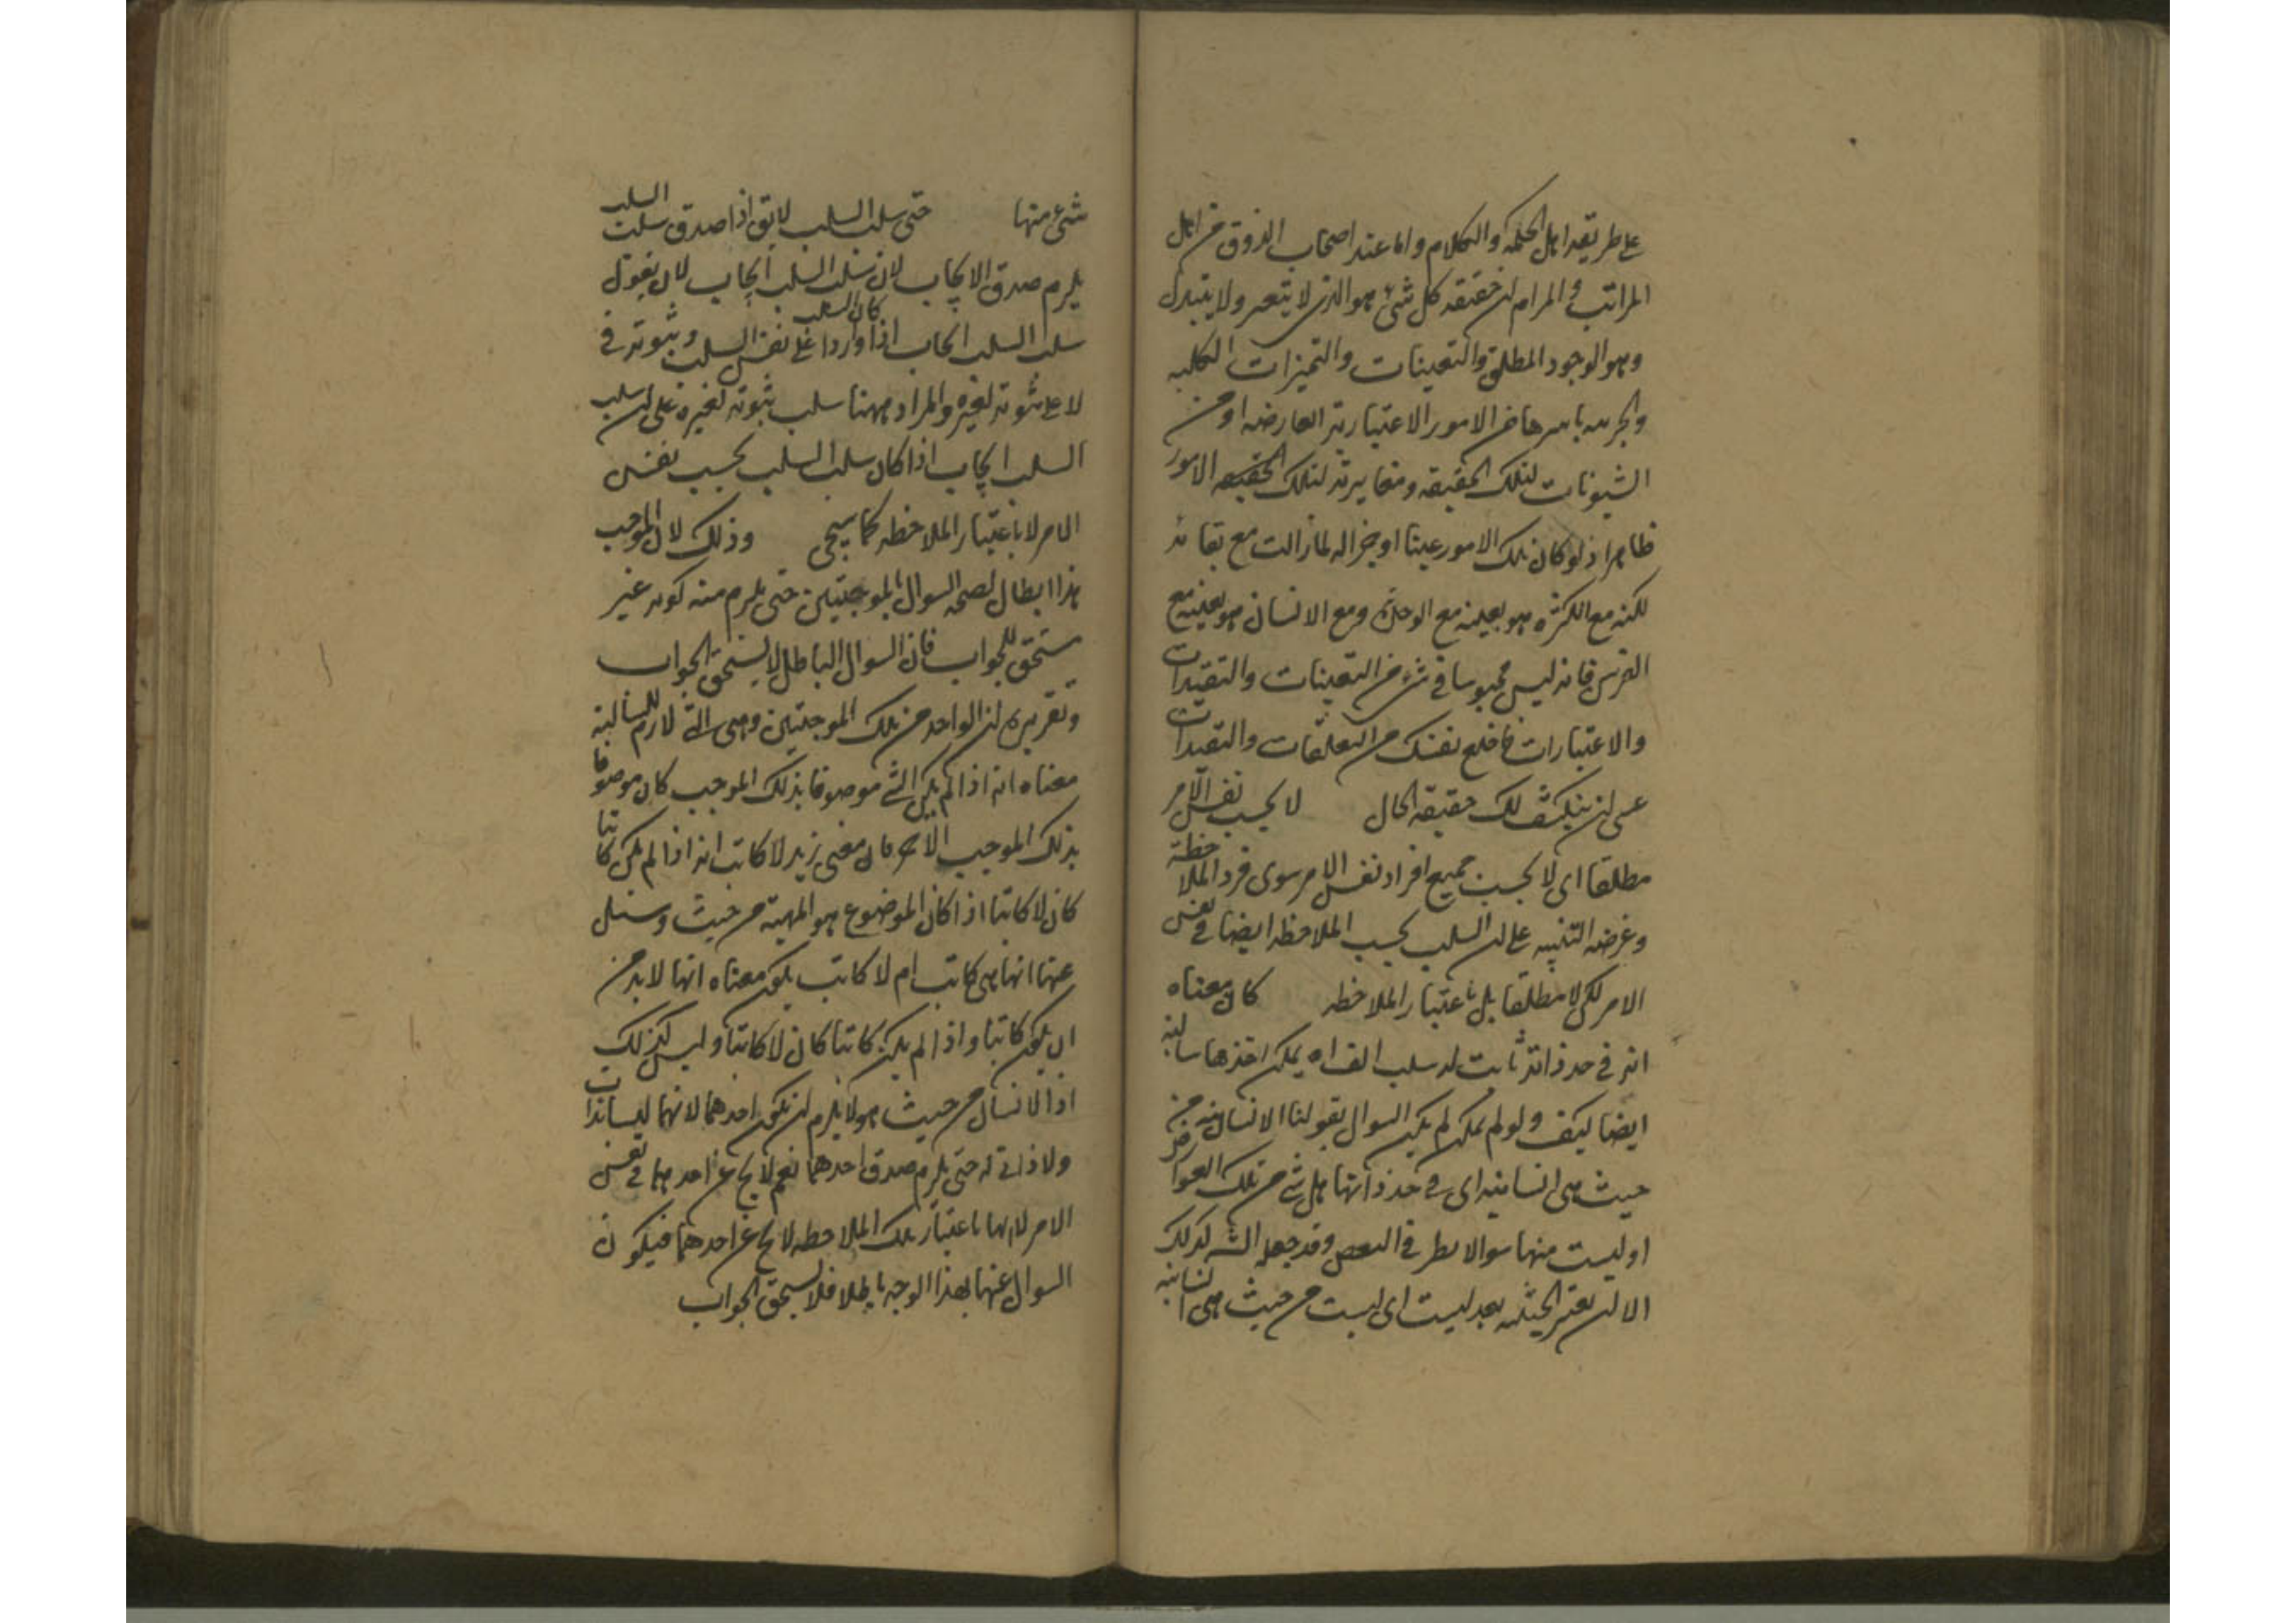 على طريقة اهل الحكمة والكلام واما عند اصحاب الذوق من اهل
المراتب والمرام ان حقيقة كل شئ هو الذى لا يتغير ولا يتبدل
وهو الوجود المطلق والتعينات والتميزات الكلية
والجزئية باسرها من الامور الاعتبارية العارضة او من
الشيونات لتلك الحقيقة ومغايرته لتلك الحقيقة الامور
ظاهر اذ لو كان تلك الامور عينا او جزا له لما زالت مع بقائه
لكنه مع الكثرة هو بعينه مع الوحدة ومع الانسان هو بعينه مع
الفرس فانه ليس محبوسا فى شئ من التعينات والتقيدات
والاعتبارات فاخلع نفسك من التعلقات والتقيدات
عسى ان ينكشف لك حقيقة الحال لا بحسب نفس الامر
مطلقا اى لا بحسب جميع افراد نفس الامر سوى فرد الملاحظة
وغرضه التنبيه على ان السلب بحسب الملاحظة ايضا فى نفس
الامر لكن لا مطلقا بل باعتبار الملاحظة كان معناه
انه فى حد ذاته ثابت له سلب الف اه يمكن اخذها سالبة
ايضا كيف ولو لم يمكن لم يكن السوال بقولنا الانسانية من
حيث هى انسانية اى فى حد ذاتها هل شئ من تلك العوارض
او ليست منها سوالا بطرفى النقيض وقد جعله الشيخ كذلك
الا ان يعتبر الحيثية بعد ليست اى ليست من حيث هى انسانية
شئ منها حتى سلب السلب لا يق اذا صدق سلب السلب
يلزم صدق الايجاب لان سلب السلب ايجاب لان نقول
سلب السلب ايجاب اذا كان السلب واردا على نفس السلب وثبوته فى
لا على ثبوته لغيره والمراد ههنا سلب ثبوته لغيره على ان سلب
السلب ايجاب اذا كان سلب السلب بحسب نفس
الامر لا باعتبار الملاحظة كما سيجى وذلك لان الموجب
هذا ابطال لصحة السوال بالموجبتين حتى يلزم منه كونه غير
مستحق للجواب فان السوال الباطل لا يستحق الجواب
وتقريره ان الواحد من تلك الموجبتين وهى التى لازم للسالبة
معناه انه اذا لم يكن الشئ موصوفا بذلك الموجب كان موصوفا
بذلك الموجب الاخر فان معنى زيد لا كاتب انه اذا لم يكن كاتبا
كان لا كاتبا اذا كان الموضوع هو المهية من حيث وسئل
عنها انها هى كاتب ام لا كاتب يكون معناه انها لا بد من
ان يكون كاتبا واذا لم يكن كاتبا كان لا كاتبا وليس كذلك
اذ الانسان من حيث هو لا يلزم ان يكون احدهما لانهما ليسا ذات
ولا ذاتى له حتى يلزم صدق احدهما نعم لا يخ عن احدهما فى نفس
الامر لانها باعتبار تلك الملاحظة لا يخ عن احدهما فيكون
السوال عنها بهذا الوجه باطلا فلا يستحق الجواب